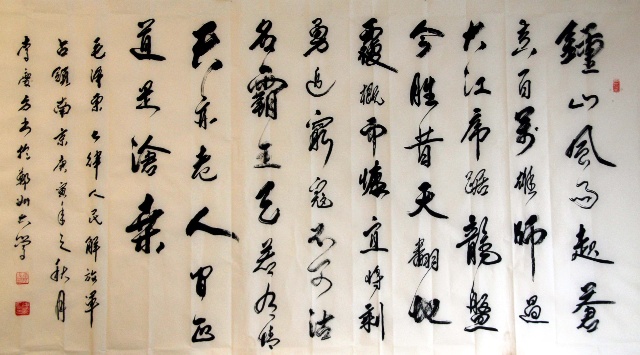 鍾山風雨起蒼
黃百萬雄師過
大江虎踞龍盤
今胜昔天翻地
覆慨而慷宜將剩
勇追窮寇不可沽
名霸王天若有情
天亦老人間正
道是滄桑
毛澤東七律人民解放軍
占領南京庚寅年之秋月
李書於鄭州